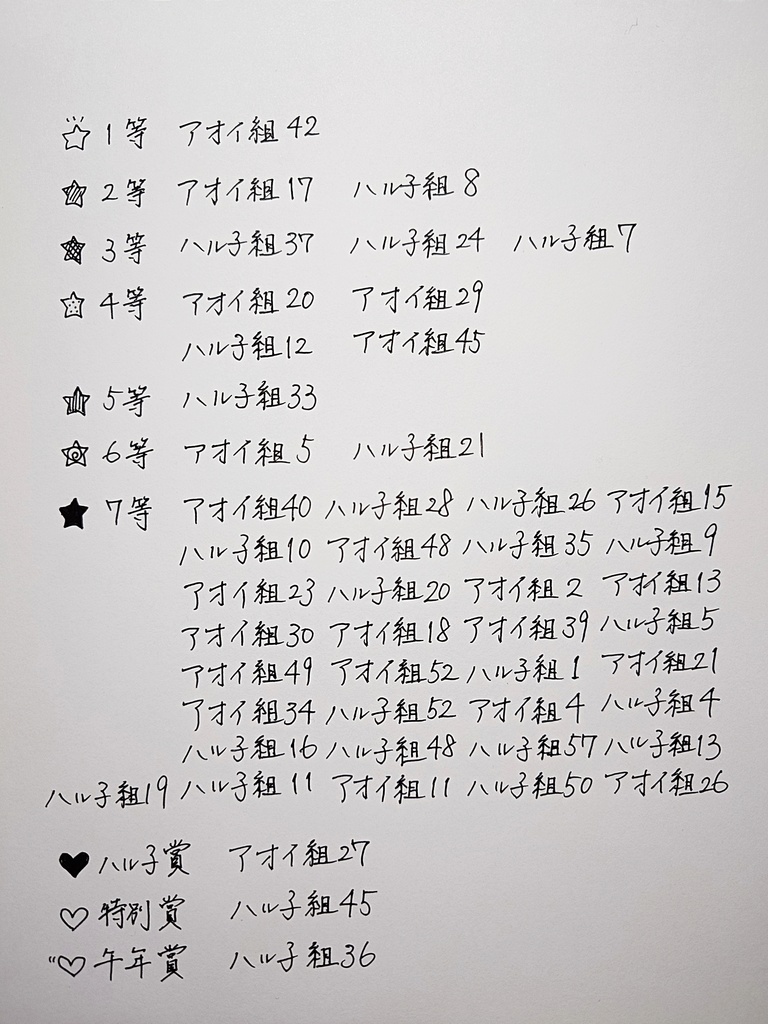 ☆1等 アオイ組42
☆2等 アオイ組17 ハル子組8
☆3等 ハル子組37 ハル子組24 ハル子組7
☆4等 アオイ組20 アオイ組29
ハル子組12 アオイ組45
☆5等 ハル子組33
☆6等 アオイ組5 ハル子組21
★7等 アオイ組40 ハル子組28 ハル子組26 アオイ組15
ハル子組10 アオイ組48 ハル子組35 ハル子組9
アオイ組23 ハル子組20 アオイ組2 アオイ組13
アオイ組30 アオイ組18 アオイ組39 ハル子組5
アオイ組49 アオイ組52 ハル子組1 アオイ組21
アオイ組34 ハル子組52 アオイ組4 ハル子組4
ハル子組16 ハル子組48 ハル子組57 ハル子組13
ハル子組19 ハル子組11 アオイ組11 ハル子組50 アオイ組26
♥ハル子賞 アオイ組27
♡特別賞 ハル子組45
♡午年賞 ハル子組36